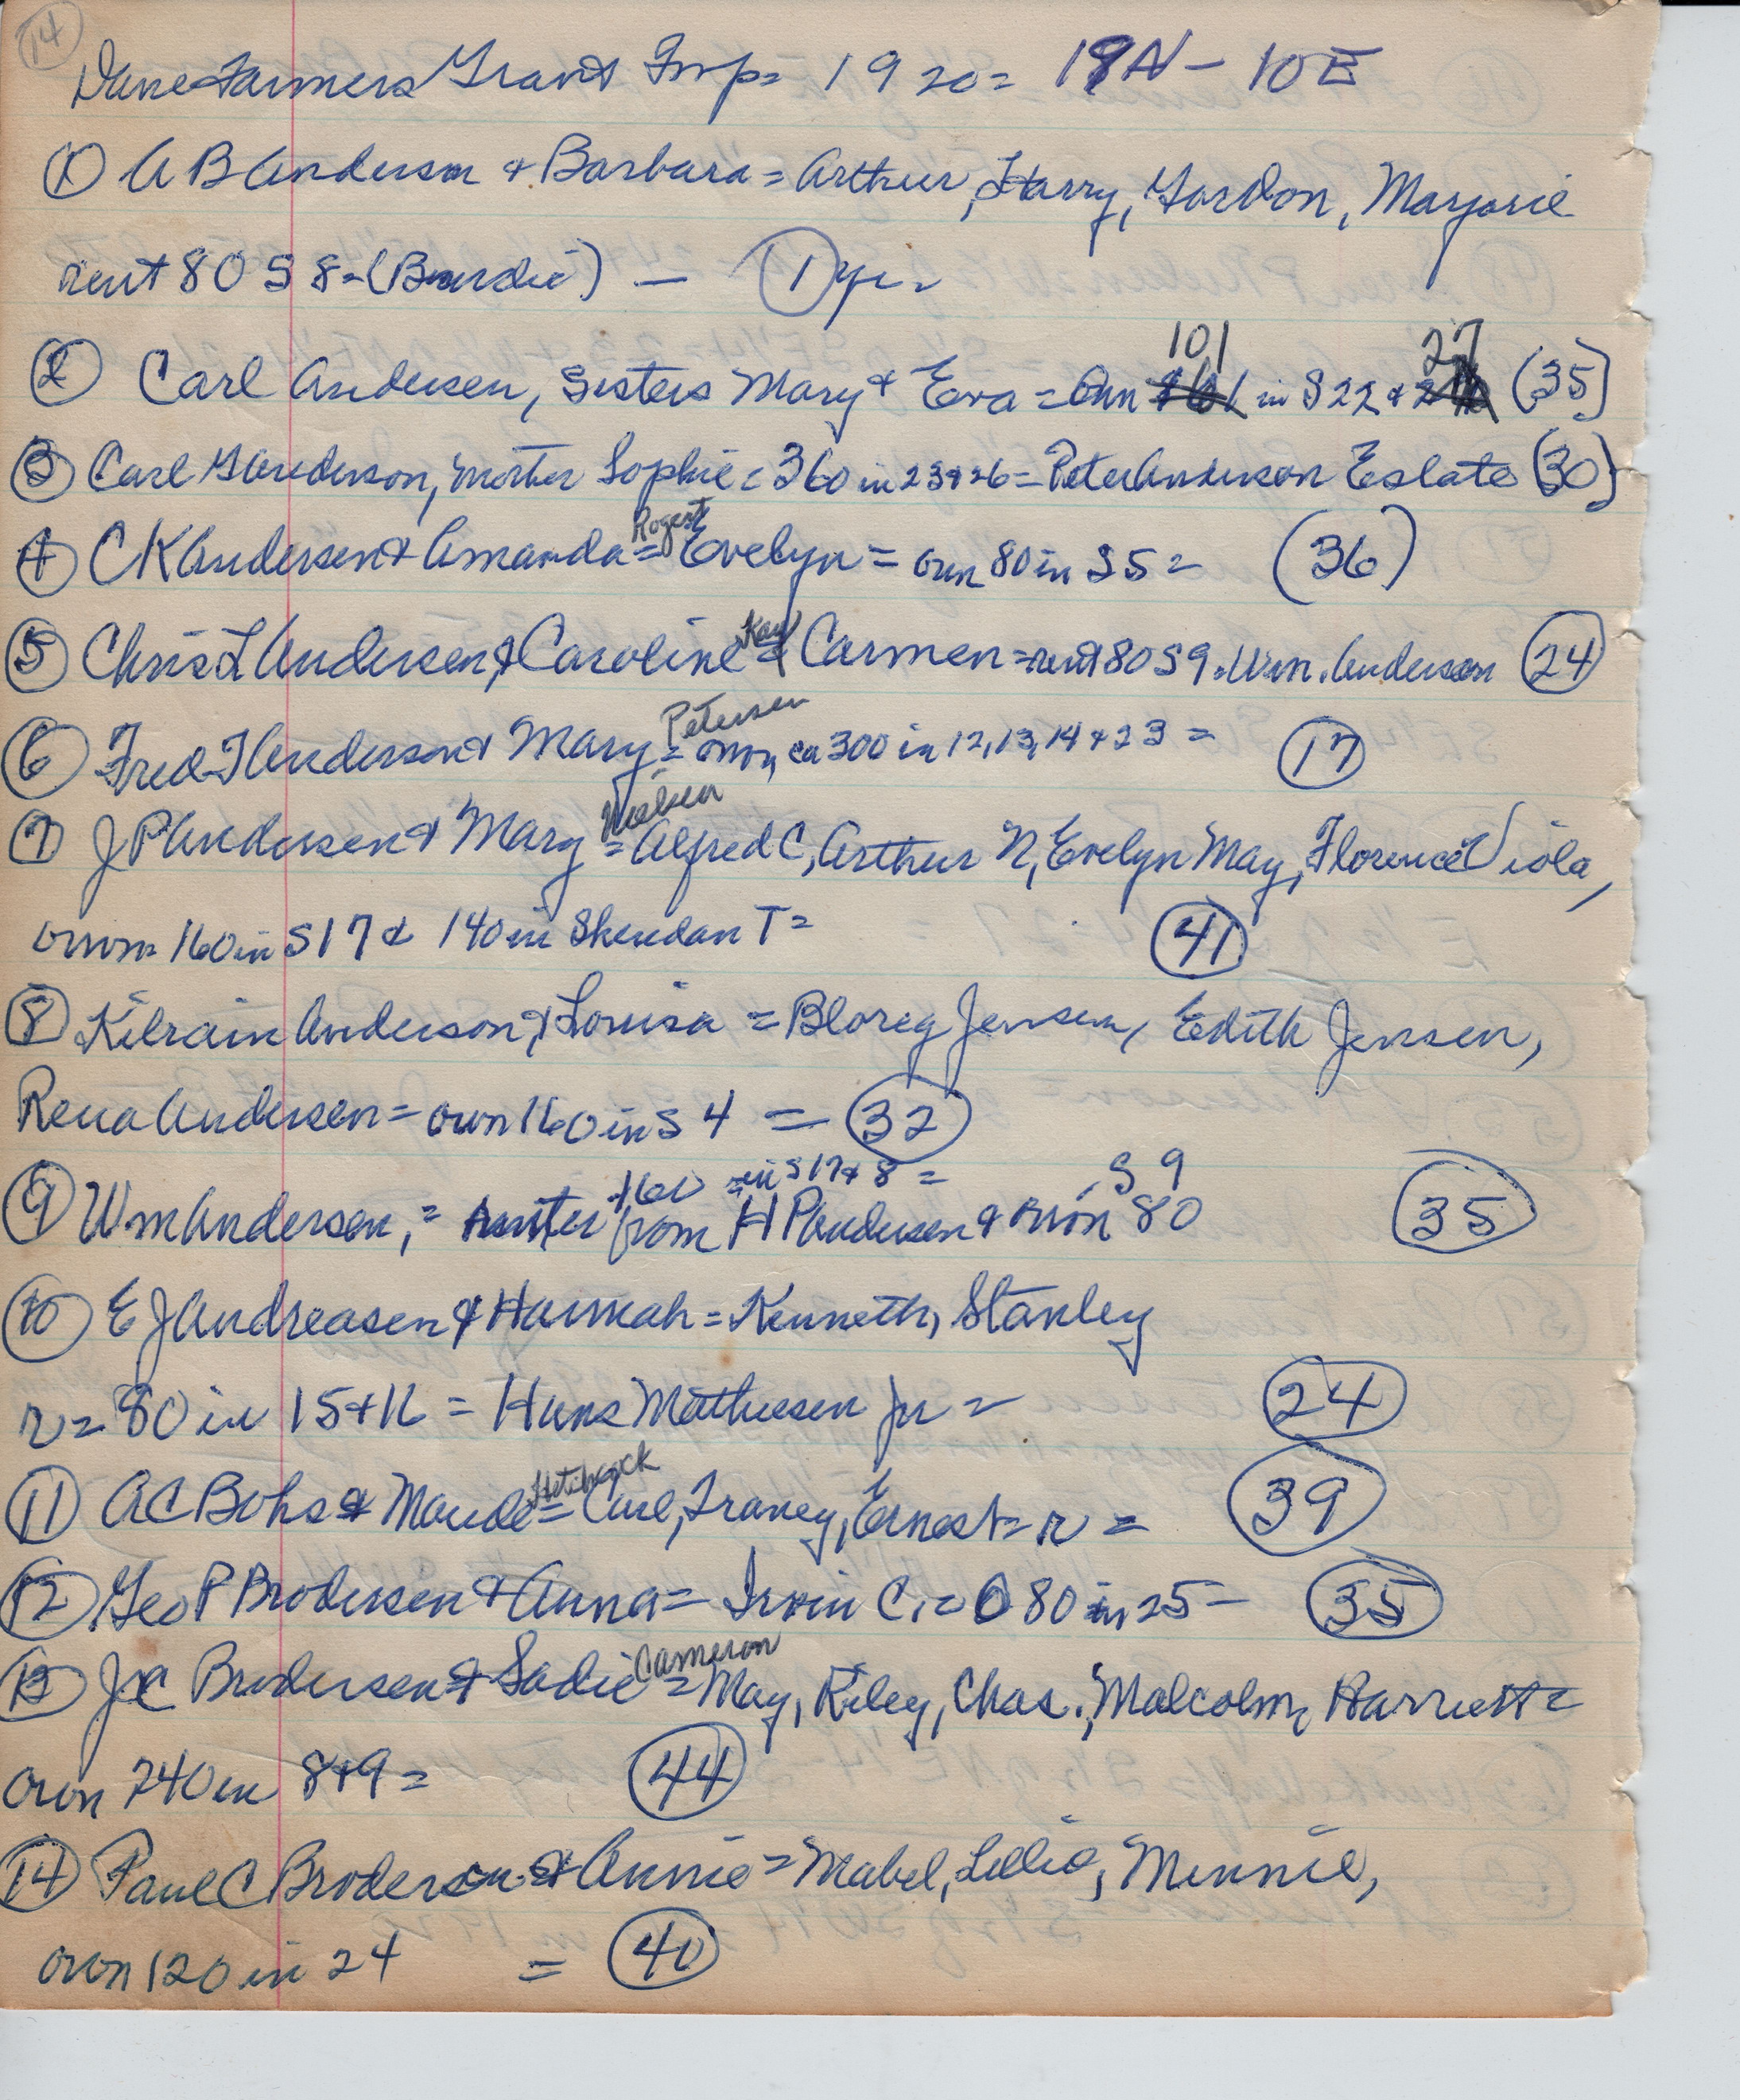 14
Dane Farmers Grant Twp= 1920= 19N- 10E
① A B Anderson & Barbara = Arthur, Harry, Gordon, Marjorie
rent 80 S 8- ( ) - ① yr=
101 27
② Carl Andersen, Sisters Mary & Eva = Own in S 22 & (35)
③ Carl G Anderson, Mother Sophie = 360 in 23&26 = Peter Anderson Estate (30)
Rogert
④ C K Andersen & Amanda = Evelyn = own 80 in S5 = (36)
Kay
⑤ Chris L Andersen & Caroline = Carmen = rent 80 S9 = Wm. Anderson (24)
Petersen
⑥ Fred T Anderson & Mary = own ca 300 in 12, 13, 14 & 23 = (17)
Nielsen
⑦ J P Andersen & Mary = Alfred C, Arthur N, Evelyn May, Florence Viola,
own 160 in S17 & 140 in Sheridan T= (41)
⑧ Kilrain Anderson & Louisa = Jensen, Edith Jensen,
Rena Andersen = own 160 in S 4 = (32)
160 in S17 & 8 = S 9
⑨ Wm Andersen, = renter from H P Andersen & own 80 (35)
⑩ E J Andreasen & Hannah = Kenneth, Stanley
r = 80 in 15 & 16 = Hans Mathiesen Jr = (24)
Hitchcock
⑪ A C Bohs & Maude = Carl, Ernest = r = (39)
⑫ Geo P Brodersen & Anna = Irvin C. = O 80 in 25 - (35)
Cameron
⑬ J C Brodersen & Sadie = May, Riley, Chas., Malcolm, Harriett =
own 240 in 8&9 = (44)
⑭ Paul C Brodersen & Annie = Mabel, Lillie, Minnie,
own 120 in 24 = (40)